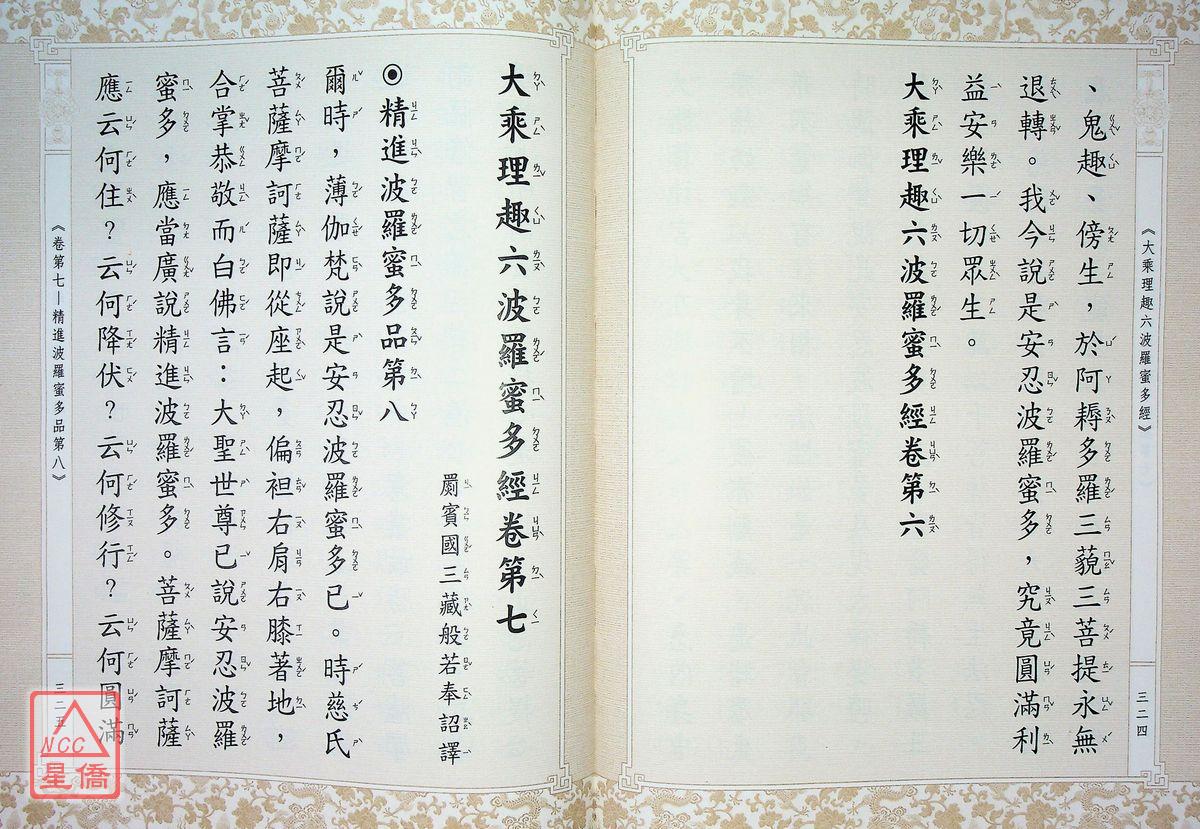 《大乘理趣六波羅蜜多經》
三二四
、鬼趣、傍生，於阿耨多羅三藐三菩提永無
退轉。我今說是安忍波羅蜜多，究竟圓滿利
益安樂一切眾生。
大乘理趣六波羅蜜多經卷第六
大乘理趣六波羅蜜多經卷第七
罽賓國三藏般若奉詔譯
◉精進波羅蜜多品第八
爾時，薄伽梵說是安忍波羅蜜多已。時慈氏
菩薩摩訶薩即從座起，偏袒右肩右膝著地，
合掌恭敬而白佛言：大聖世尊已說安忍波羅
蜜多，應當廣說精進波羅蜜多。菩薩摩訶薩
應云何住？云何降伏？云何修行？云何圓滿
《卷第七—精進波羅蜜多品第八》
三二五
NCC
星僑